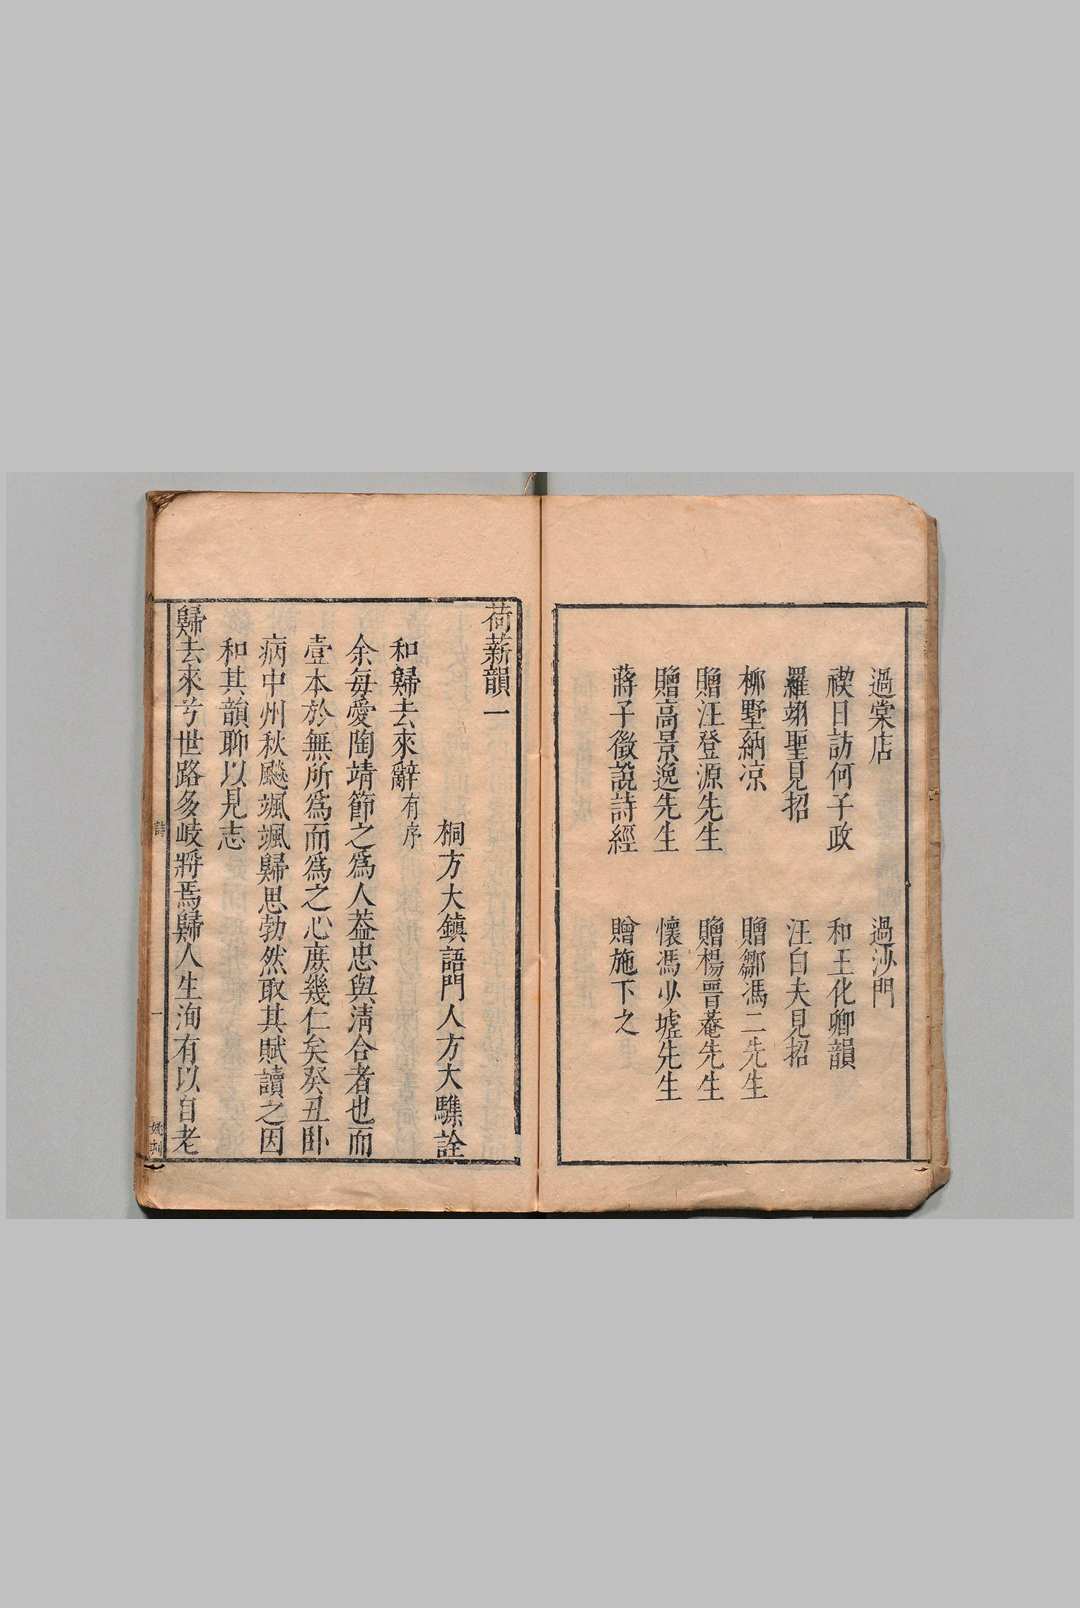 過棠店
過沙門
禊日訪何子政
和王化卿韻
羅翊聖見招
汪白夫見招
柳墅納凉
贈鄒馮二先生
贈汪登源先生
贈楊晋菴先生
贈高景逸先生
懷馮少墟先生
蔣子徵說詩經
贈施下之
荷薪韻一
桐方大鎮語門人方大騹詮
和歸去來辭有序
余每愛陶靖節之爲人葢忠與清合者也而
壹本於無所爲而爲之心庻幾仁矣癸丑卧
病中州秋飈颯颯歸思勃然取其賦讀之因
和其韻聊以見志
歸去來兮世路多岐將焉歸人生洵有以自老
詩
一
姚刊